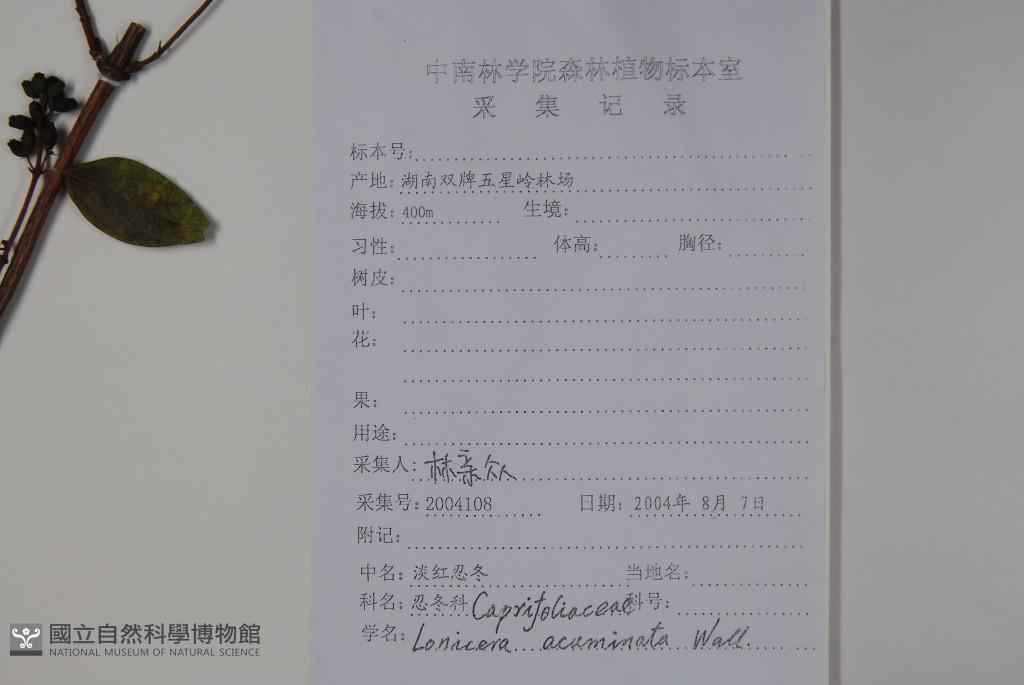 中南林学院森林植物标本室
采 集 记 录
标本号:
产地: 湖南双牌五星岭林场
海拔: 400m 生境:
习性: 体高: 胸径:
树皮:
叶:
花:
果:
用途:
采集人: 林亲众
采集号: 2004108 日期: 2004年 8月 7日
附记:
中名: 淡红忍冬 当地名:
科名: 忍冬科 Caprifoliaceae 科号:
学名: Lonicera acuminata Wall.
國立自然科學博物館
NATIONAL MUSEUM OF NATURAL SCIENCE